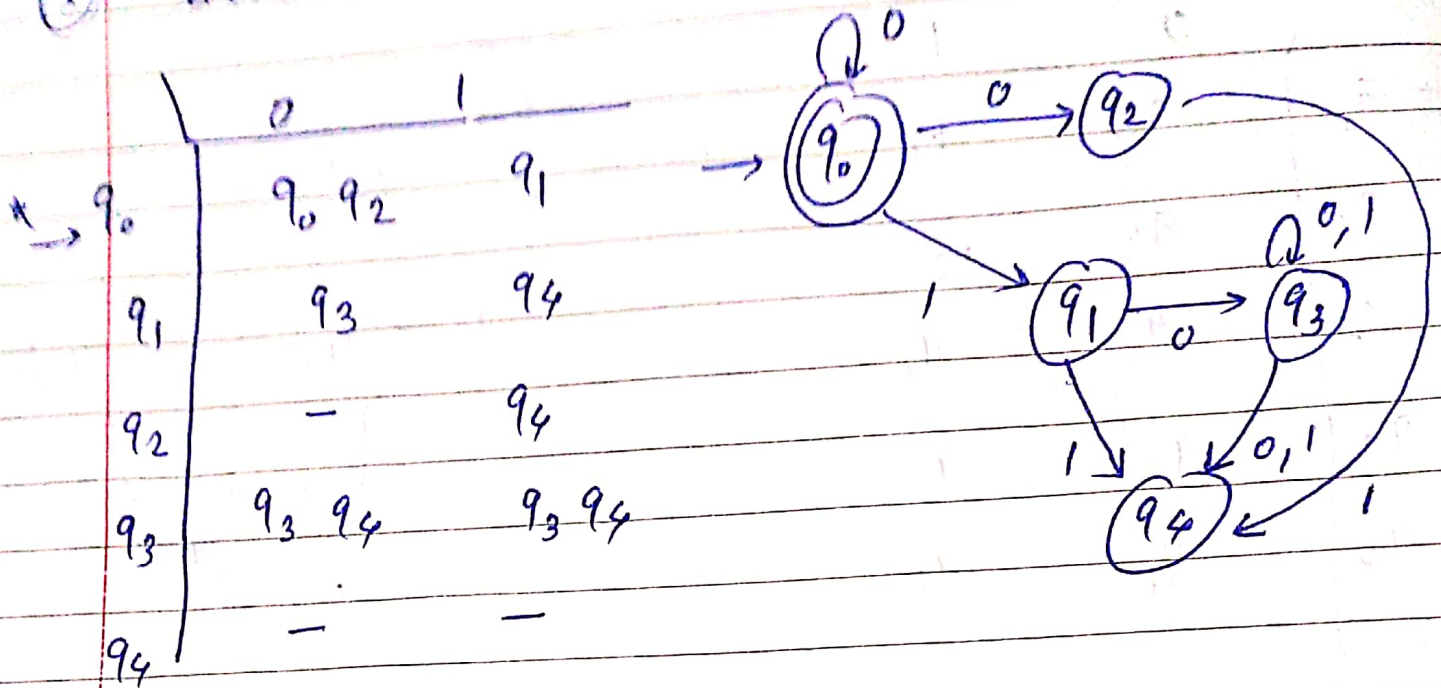 0 1
* → q0 q0 q2 q1
q1 q3 q4
q2 - q4
q3 q3 q4 q3 q4
q4 - -
0
→ q0 0 q2
1 q1 0 q3 0,1
1 0,1 1
q4